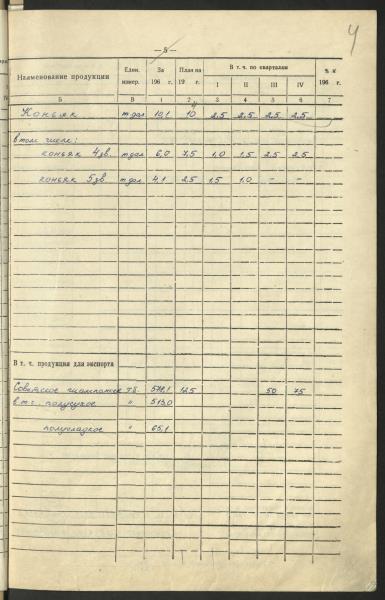 4
— 5 —
Наименование продукции Един. измер. За 196 г. План на 19 г. В т. ч. по кварталам % к 196 г.
I II III IV
Б В 1 2 3 4 5 6 7
Коньяк т дал 10,1 10 2,5 2,5 2,5 2,5
в том числе:
коньяк 4 зв. т дал 6,0 7,5 1,0 1,5 2,5 2,5
коньяк 5 зв т дал 4,1 2,5 1,5 1,0 - -
В т. ч. продукция для экспорта
Советское шампанское т.б. 578,1 125 50 75
в т.ч. полусухое " 513,0
полусладкое " 65,1